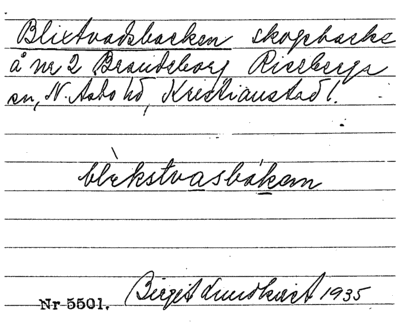 Blixtvadsbacken skogsbacke
å nr 2 Brandsborg Riseberga
sn, N. Åsbo hd, Kristianstads l.
blèkstvasbákan
Nr 5501. Birgit Lundkvist 1935